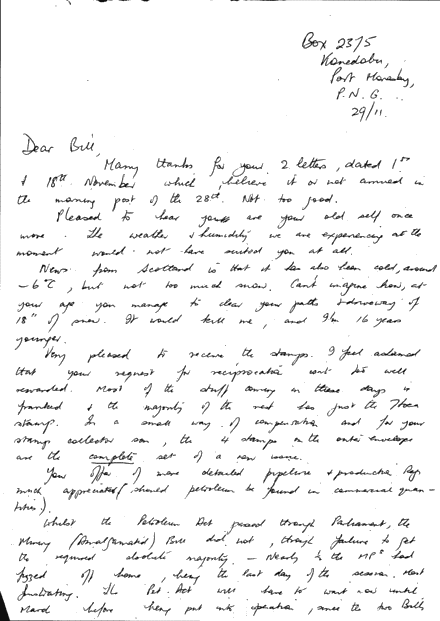 Box 2375
Konedobu,
Port Moresby,
P.N.G.
29/11.
Dear Bill,
Many thanks for your 2 letters, dated 1st
& 18th November which, believe it or not arrived in
the morning post of the 28th. Not too good.
Pleased to hear you are your old self once
more. The weather & humidity we are experiencing at the
moment would not have suited you at all.
News from Scotland is that it has also been cold, around
-6°C, but not too much snow. Can't imagine how, at
your age you manage to clear your paths & driveway of
18" of snow. It would kill me, and I'm 16 years
younger.
Very pleased to receive the stamps. I feel ashamed
that your request for reciprocation isn't too well
rewarded. Most of the stuff coming in these days is
franked & the majority of the rest has just the 7toea
stamp. In a small way of compensation and for your
stamp collector son, the 4 stamps on the outer envelope
are the complete set of a new issue.
Your offer of more detailed pipeline & production Regs
much appreciated (should petroleum be found in commercial quan-
tities).
Whilst the Petroleum Act passed through Parliament, the
Mining (Amalgamated) Bill did not, through failure to get
the required absolute majority. - Nearly ½ the MPs had
home, being the last day of the session. Most
frustrating. The Pet. Act will have to wait now until
March before being put into operation, since the two Bills